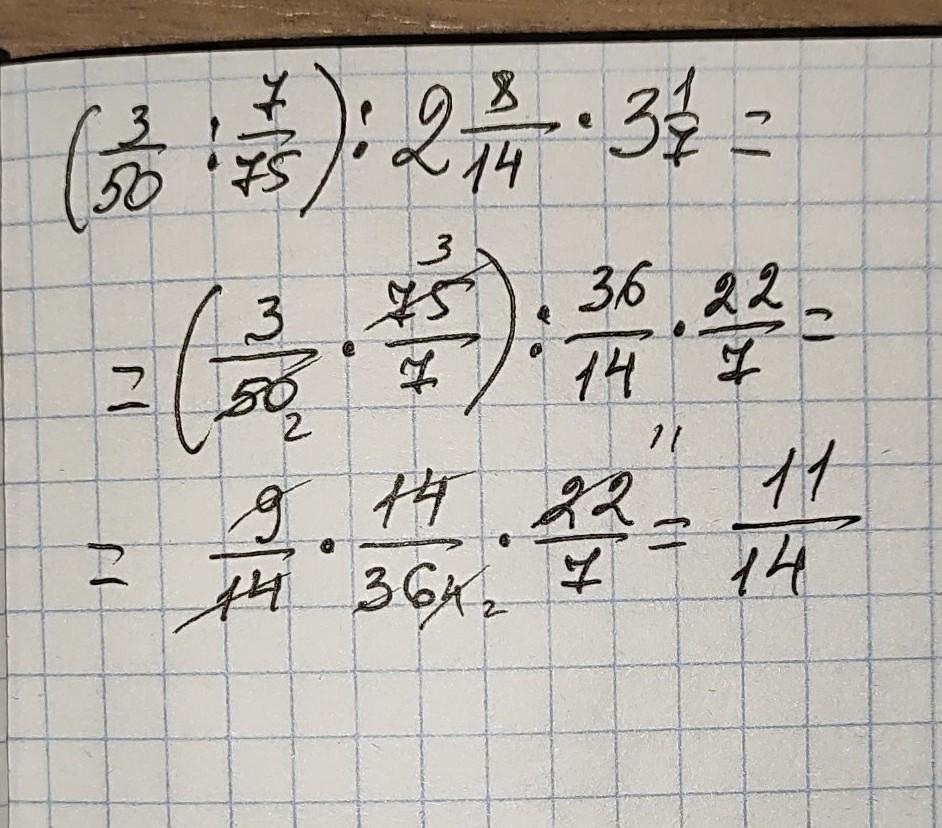 (3/50 : 7/75) : 2 8/14 · 3 1/7 =
= (3/50 2 · 75 3/7) : 36/14 · 22/7 =
= 9/14 · 14/36 4 2 · 22 11/7 = 11/14